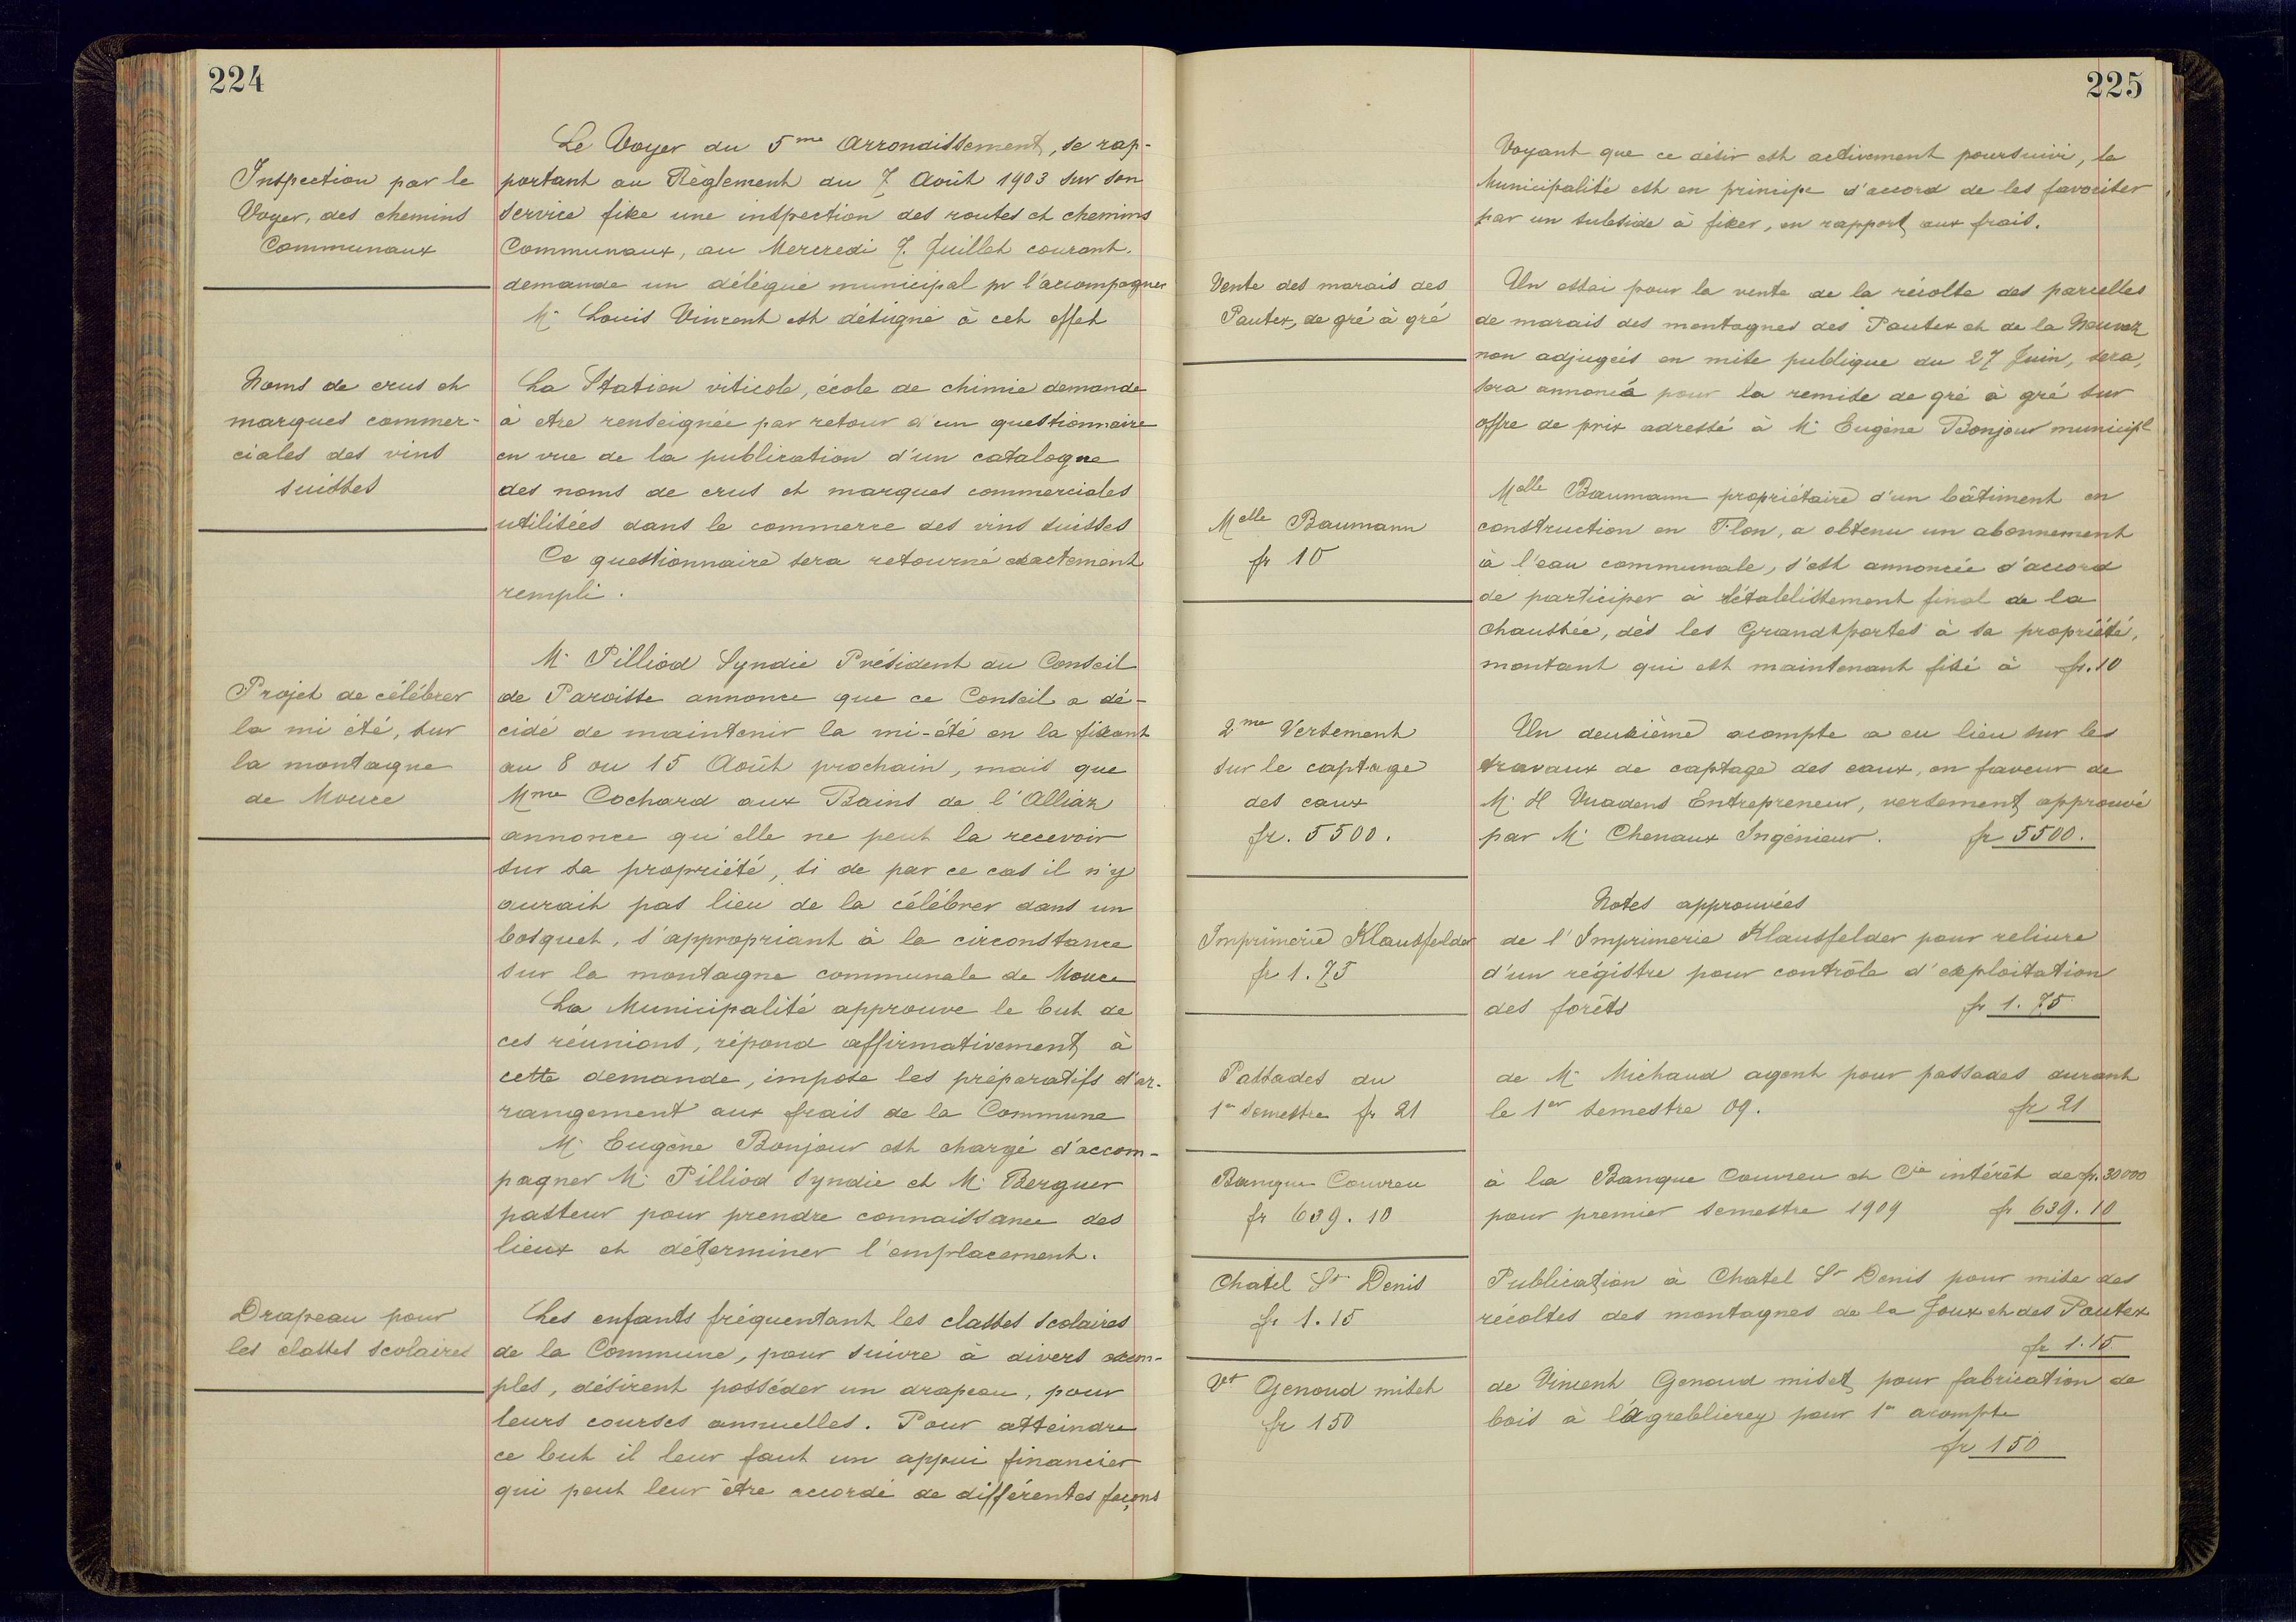 224
Inspection par le
Voyer, des chemins
Communaux
Le Voyer du 5me Arrondissement, se rap-
portant au Règlement du 7 Août 1903 sur son
service fixe une inspection des routes et chemins
Communaux, au Mercredi 7. Juillet courant.
demande un délégué municipal pr l'accompagner
Mr Louis Vincent est désigné à cet effet
Noms de crus et
marques commer-
ciales des vins
suisses
La Station viticole, école de chimie demande
à etre renseignée par retour d'un questionnaire
en vue de la publication d'un catalogue
des noms de crus et marques commerciales
utilisées dans le commerce des vins suisses
Ce questionnaire sera retourné exactement
rempli.
Projet de célébrer
la mi été, sur
la montagne
de Mouce
Mr Pilliod Syndic Président du Conseil
de Paroisse annonce que ce Conseil a dé-
cidé de maintenir la mi-été en la fixant
au 8 ou 15 Août prochain, mais que
Mme Cochard aux Bains de l'Alliaz
annonce qu'elle ne peut la recevoir
sur sa propriété, si de par ce cas il n'y
aurait pas lieu de la célébrer dans un
bosquet, s'appropriant à la circonstance
sur la montagne communale de Mouce
La Municipalité approuve le but de
ces réunions, répond affirmativement à
cette demande, impose les préparatifs d'ar-
rangement aux frais de la Commune
Mr Eugène Bonjour est chargé d'accom-
pagner Mr Pilliod Syndic et Mr Berguer
pasteur pour prendre connaissance des
lieux et déterminer l'emplacement.
Drapeau pour
les classes scolaires
Les enfants fréquentant les classes scolaires
de la Commune, pour suivre à divers exem-
ples, désirent posséder un drapeau, pour
leurs courses annuelles. Pour atteindre
ce but il leur faut un appui financier
qui peut leur être accordé de différentes façons
225
Voyant que ce désir est activement poursuivi, la
Municipalité est en principe d'accord de les favoriser
par un subside à fixer, en rapport aux frais.
Vente des marais des
Pautex, de gré à gré
Un essai pour la vente de la récolte des parcelles
de marais des montagnes des Pautex et de la Neuvaz
non adjugées en mise publique du 27 Juin, sera,
sera annoncé pour la remise de gré à gré sur
offre de prix adressé à Mr Eugène Bonjour municipl
Melle Baumann
fr 10
Melle Baumann propriétaire d'un bâtiment en
construction en Flon, a obtenu un abonnement
à l'eau communale, s'est annoncée d'accord
de participer à l'établissement final de la
chaussée, dès les Grandsportes à sa propriété,
montant qui est maintenant fixé à fr. 10
2me Versement
sur le captage
des eaux
fr. 5500.
Un deuxième acompte a eu lieu sur les
travaux de captage des eaux, en faveur de
Mr H Vuadens Entrepreneur, versement approuvé
par Mr Chenaux Ingénieur. fr 5500.
Notes approuvées
Imprimerie Klausfelder
fr 1.75
de l'Imprimerie Klausfelder pour reliure
d'un régistre pour contrôle d'exploitation
des forêts fr 1.75
Passades du
1er semestre fr 21
de Mr Michaud agent pour passades durant
le 1er semestre 09. fr 21
Banque Couvreu
fr 639.10
à la Banque Couvreu et Cie intérêt de fr. 30000
pour premier semestre 1909 fr 639.10
Chatel St Denis
fr 1.15
Publication à Chatel St Denis pour mise des
récoltes des montagnes de la Joux et des Pautex
fr 1.15
Vt Genoud miset
fr 150
de Vincent Genoud miset pour fabrication de
bois à l'agreblierey pour 1er acompte
fr 150